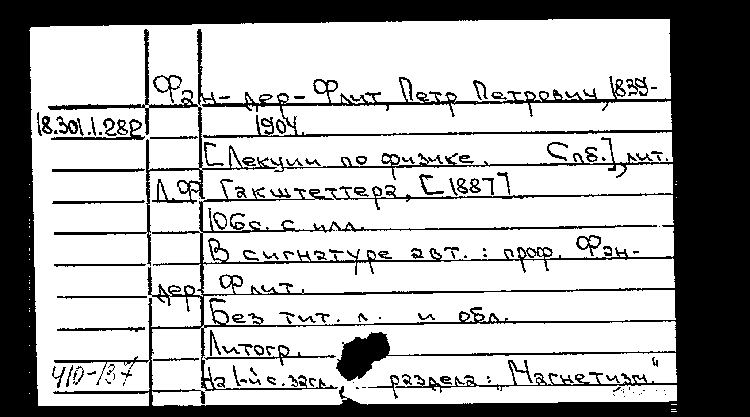 Фан-дер-Флит, Петр Петрович, 1839-
18.301.1.282 1904.
[Лекции по физике. Спб.], лит.
Л.Ф. Гакштеттера, [1887]
106с. с илл.
В сигнатуре авт.: проф. Фан-
дер-Флит.
Без тит. л. и обл.
Литогр.
410-137 На 1-й с. загл. раздела: "Магнетизм."